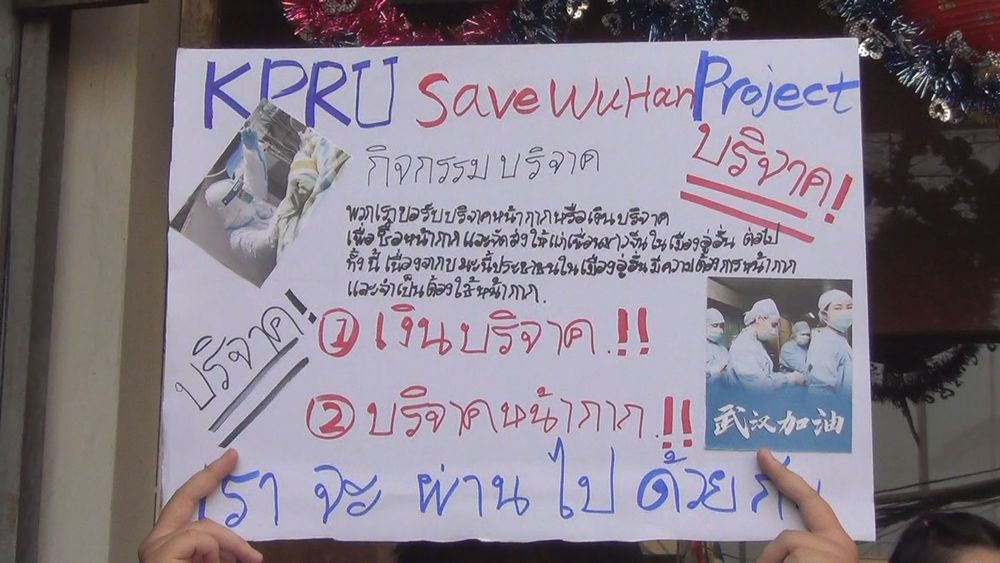 KPRU Save WuHan Project
กิจกรรม บริจาค
บริจาค!
พวกเราขอรับบริจาคหน้ากากหรือเงินบริจาค
เพื่อซื้อหน้ากาก และจัดส่งให้แก่เพื่อนชาวจีนในเมืองอู่ฮั่น ต่อไป
ทั้งนี้ เนื่องจากขณะนี้ประชาชนในเมืองอู่ฮั่น มีความต้องการหน้ากาก
และจำเป็นต้องใช้หน้ากาก.
บริจาค!
① เงินบริจาค.!!
② บริจาคหน้ากาก.!!
武汉加油
เรา จะ ผ่าน ไป ด้วย